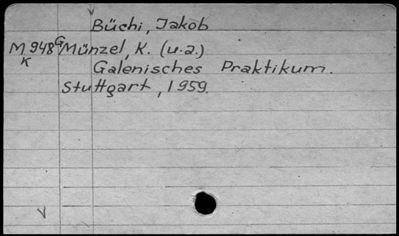 Büchi, Jakob
M 948 G Münzel, K. (u.a.)
K
Galenisches Praktikum.
Stuttgart, 1959.